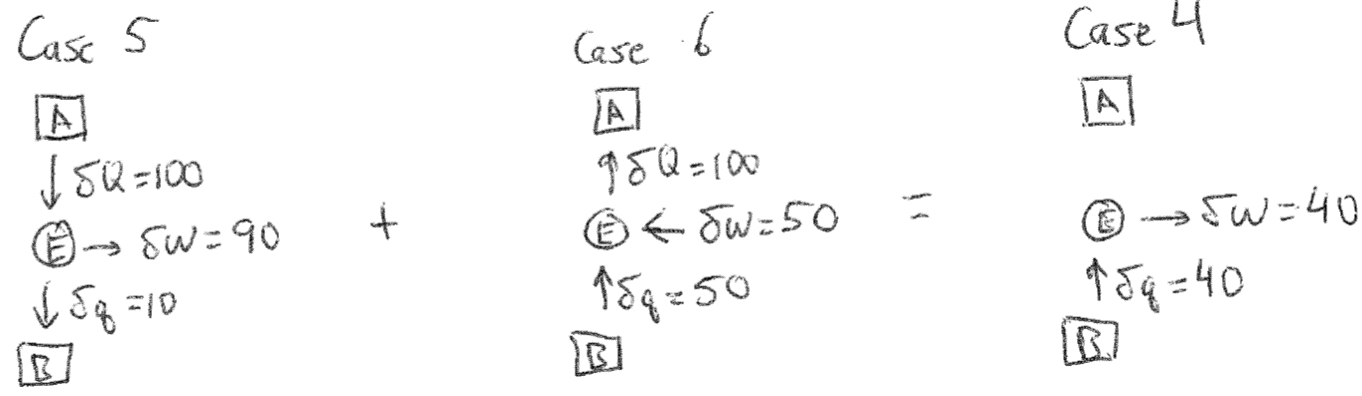 Case 5
A
↓ δQ=100
E → δW=90
↓ δq=10
B
+
Case 6
A
↑ δQ=100
E ← δW=50
↑ δq=50
B
=
Case 4
A
E → δW=40
↑ δq=40
B